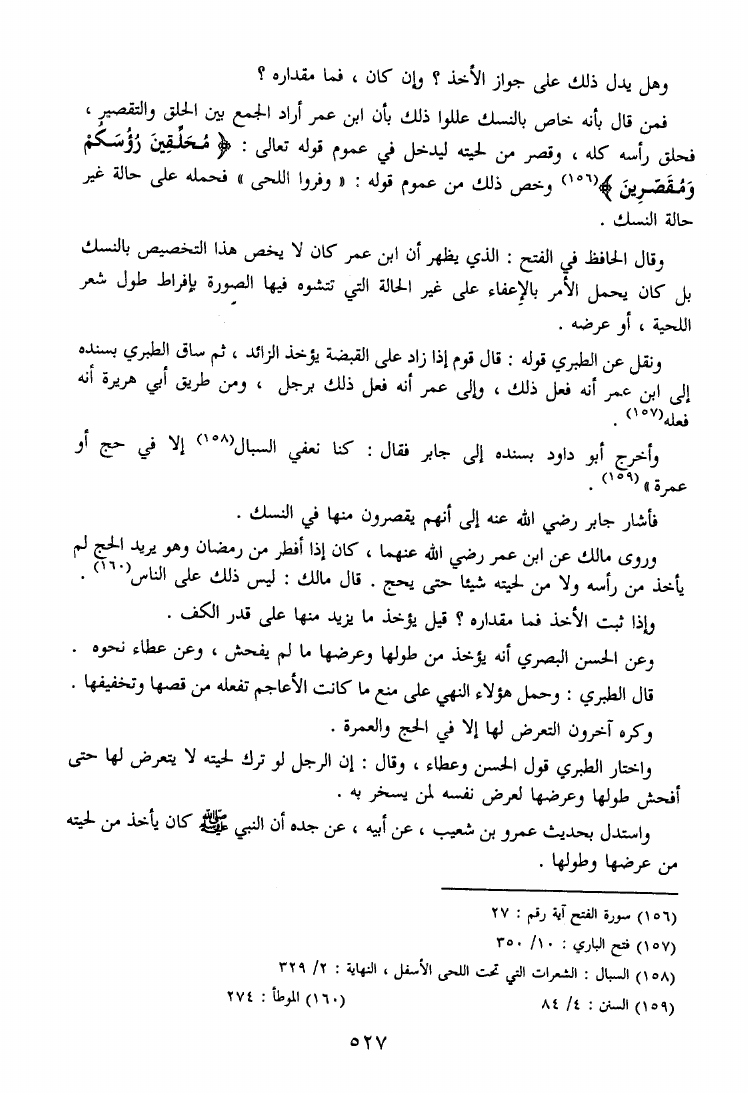 وهل يدل ذلك على جواز الأخذ ؟ وإن كان ، فما مقداره ؟
فمن قال بأنه خاص بالنسك عللوا ذلك بأن ابن عمر أراد الجمع بين الحلق والتقصير ،
فحلق رأسه كله ، وقصر من لحيته ليدخل في عموم قوله تعالى : ﴿ مُحَلِّقِينَ رُؤُسَكُمْ
وَمُقَصِّرِينَ ﴾(١٥٦) وخص ذلك من عموم قوله : « وفروا اللحى » فحمله على حالة غير
حالة النسك .
وقال الحافظ في الفتح : الذي يظهر أن ابن عمر كان لا يخص هذا التخصيص بالنسك
بل كان يحمل الأمر بالإعفاء على غير الحالة التي تتشوه فيها الصورة بإفراط طول شعر
اللحية ، أو عرضه .
ونقل عن الطبري قوله : قال قوم إذا زاد على القبضة يؤخذ الزائد ، ثم ساق الطبري بسنده
إلى ابن عمر أنه فعل ذلك ، وإلى عمر أنه فعل ذلك برجل ، ومن طريق أبي هريرة أنه
فعله(١٥٧) .
وأخرج أبو داود بسنده إلى جابر فقال : كنا نعفي السبال(١٥٨) إلا في حج أو
عمرة »(١٥٩) .
فأشار جابر رضي الله عنه إلى أنهم يقصرون منها في النسك .
وروى مالك عن ابن عمر رضي الله عنهما ، كان إذا أفطر من رمضان وهو يريد الحج لم
يأخذ من رأسه ولا من لحيته شيئا حتى يحج . قال مالك : ليس ذلك على الناس(١٦٠) .
وإذا ثبت الأخذ فما مقداره ؟ قيل يؤخذ ما يزيد منها على قدر الكف .
وعن الحسن البصري أنه يؤخذ من طولها وعرضها ما لم يفحش ، وعن عطاء نحوه .
قال الطبري : وحمل هؤلاء النهي على منع ما كانت الأعاجم تفعله من قصها وتخفيفها .
وكره آخرون التعرض لها إلا في الحج والعمرة .
واختار الطبري قول الحسن وعطاء ، وقال : إن الرجل لو ترك لحيته لا يتعرض لها حتى
أفحش طولها وعرضها لعرض نفسه لمن يسخر به .
واستدل بحديث عمرو بن شعيب ، عن أبيه ، عن جده أن النبي ﷺ كان يأخذ من لحيته
من عرضها وطولها .
(١٥٦) سورة الفتح آية رقم : ٢٧
(١٥٧) فتح الباري : ١٠/ ٣٥٠
(١٥٨) السبال : الشعرات التي تحت اللحى الأسفل ، النهاية : ٢/ ٣٢٩
(١٥٩) السنن : ٤/ ٨٤ (١٦٠) الموطأ : ٢٧٤
٥٢٧